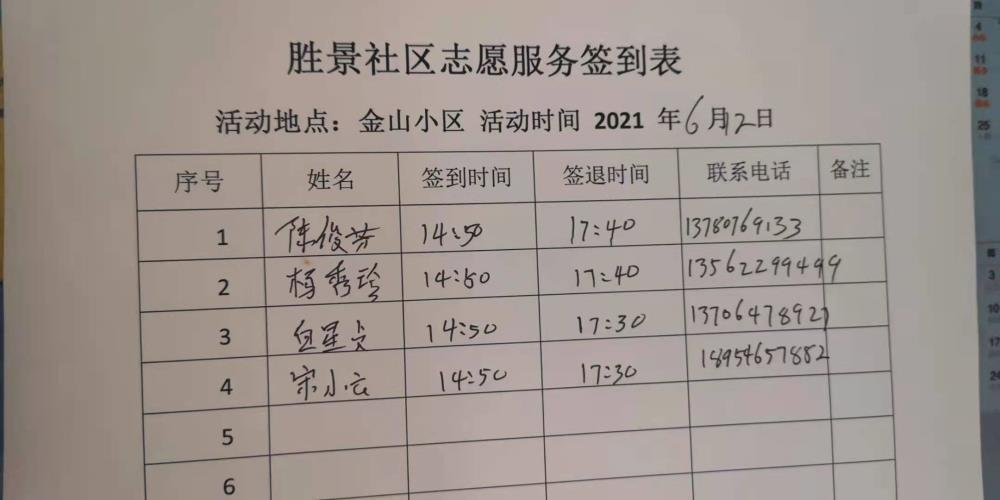 胜景社区志愿服务签到表
活动地点：金山小区 活动时间 2021 年6月12日
序号 姓名 签到时间 签退时间 联系电话 备注
1 陈俊芳 14:50 17:40 13780769133
2 杨秀玲 14:50 17:40 13562299499
3 14:50 17:30 13706478921
4 宋小云 14:50 17:30 18954657882
5
6
4
11
18
25
3
10
17
24